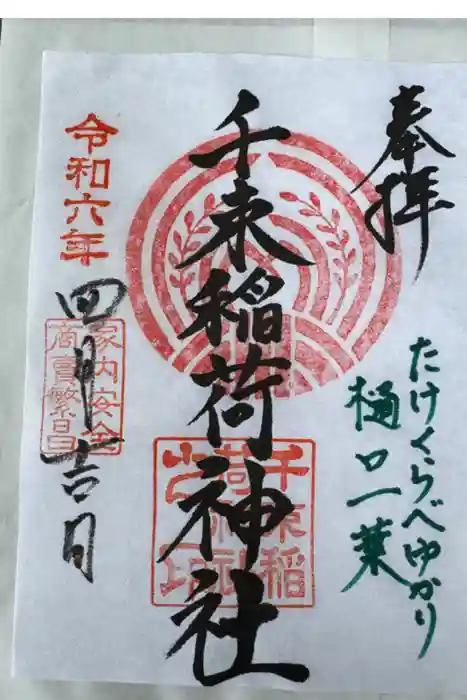 奉拝
たけくらべゆかり
樋口一葉
千束稲荷神社
令和六年
四月吉日
家内安全
商賣繁昌